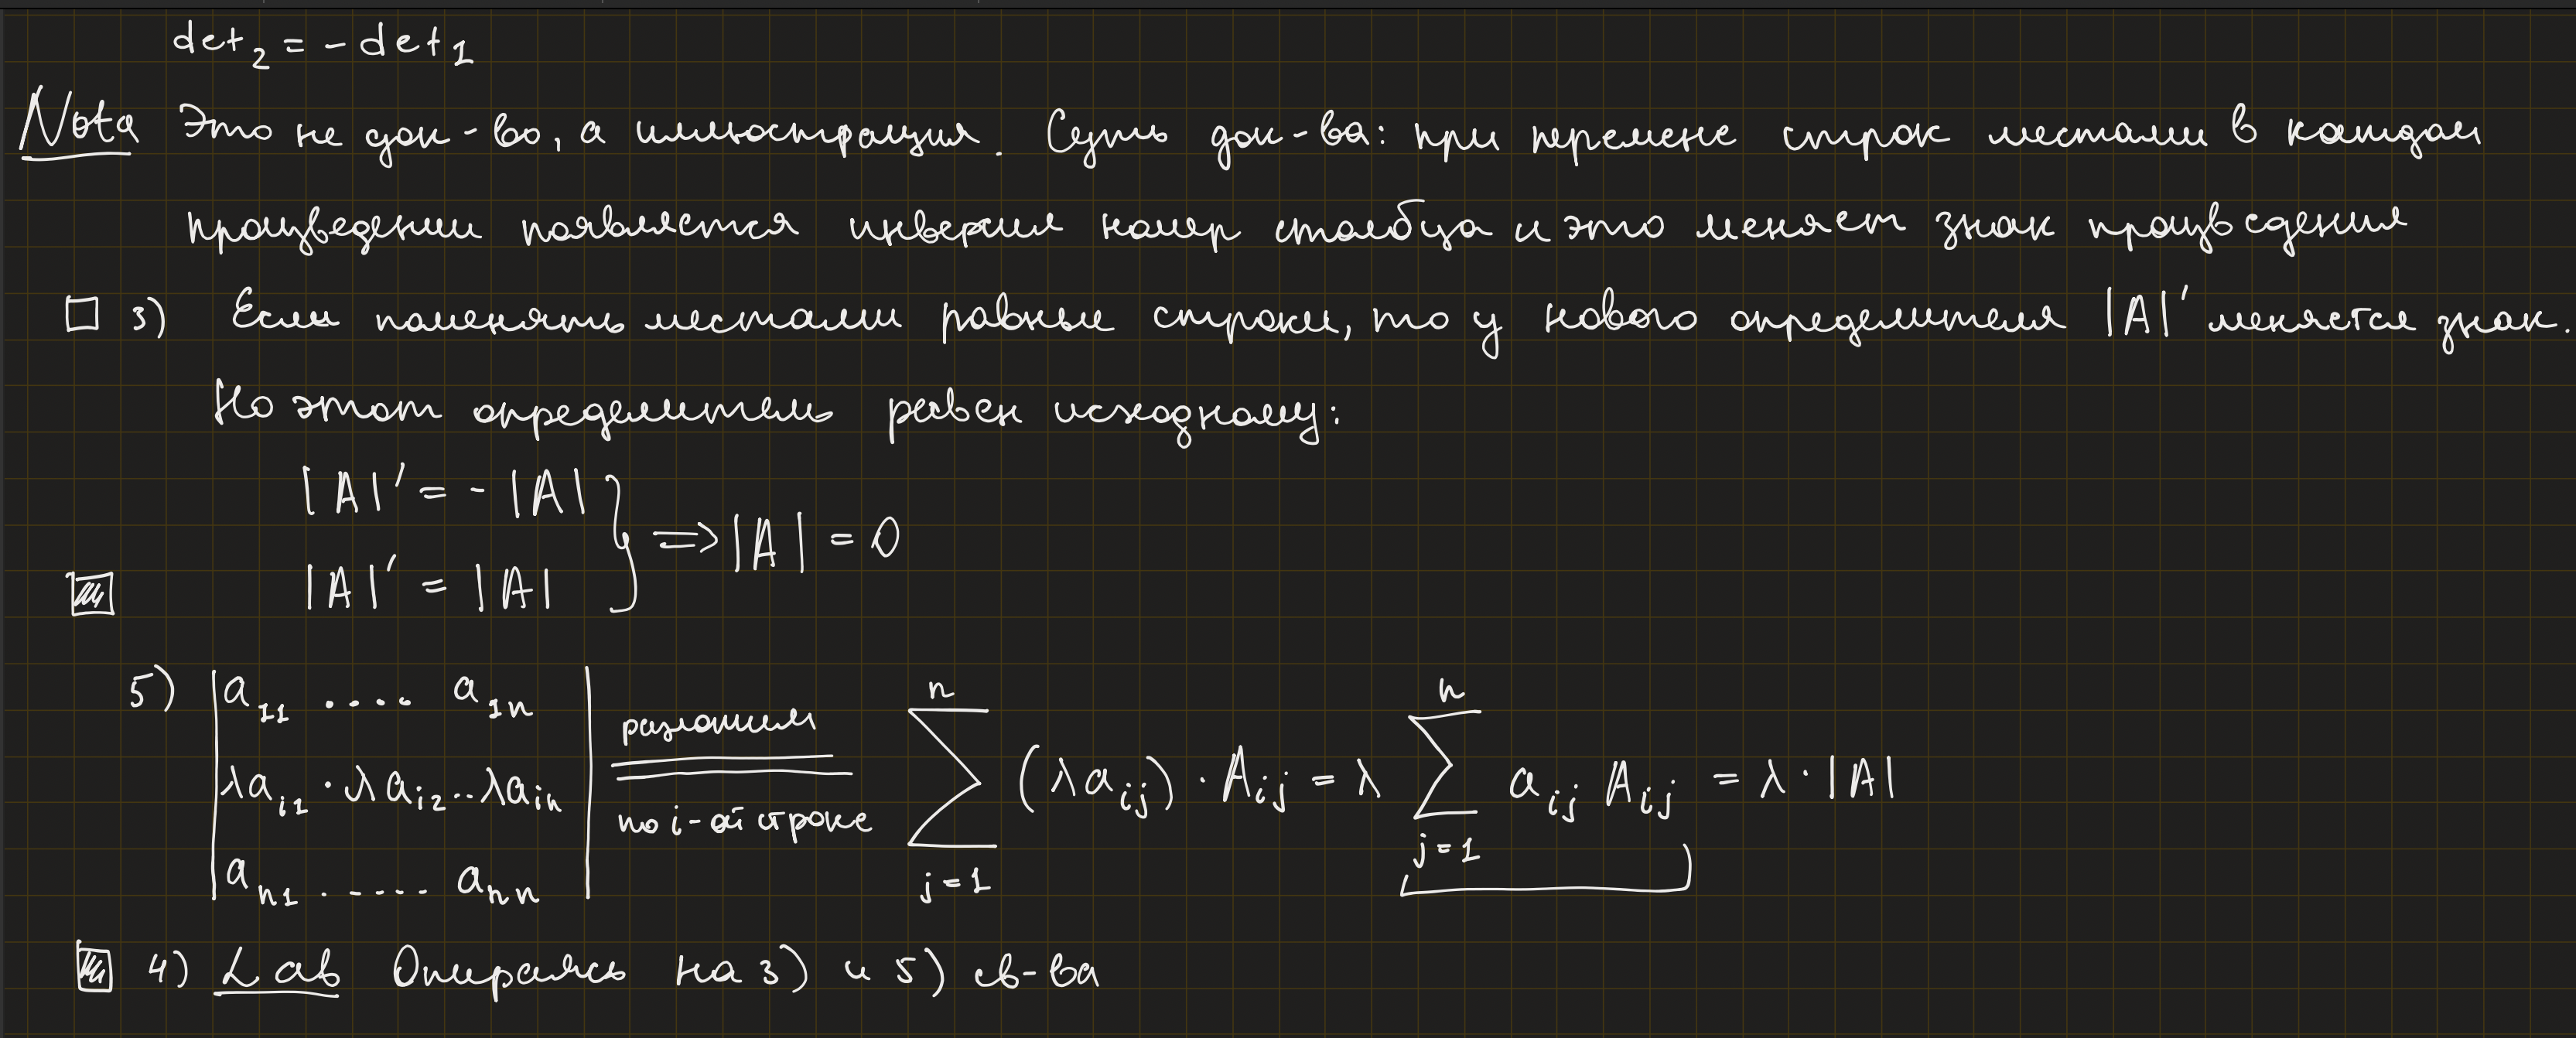 det₂ = - det₁
Nota Это не док-во, а иллюстрация. Суть док-ва: при перемене строк местами в каждом
произведении появляется инверсия номер столбца и это меняет знак произведения
□ 3) Если поменять местами равные строки, то у нового определителя |A|' меняется знак.
Но этот определитель равен исходному:
|A|' = - |A|
|A|' = |A| } => |A| = 0
5) |a₁₁ .... a₁ₙ
λaᵢ₁ · λaᵢ₂ .. λaᵢₙ
aₙ₁ ..... aₙₙ| разложим по i-ой строке = ∑ⱼ₌₁ⁿ (λaᵢⱼ) · Aᵢⱼ = λ ∑ⱼ₌₁ⁿ aᵢⱼ Aᵢⱼ = λ · |A|
4) Lab Опираясь на 3) и 5) св-ва